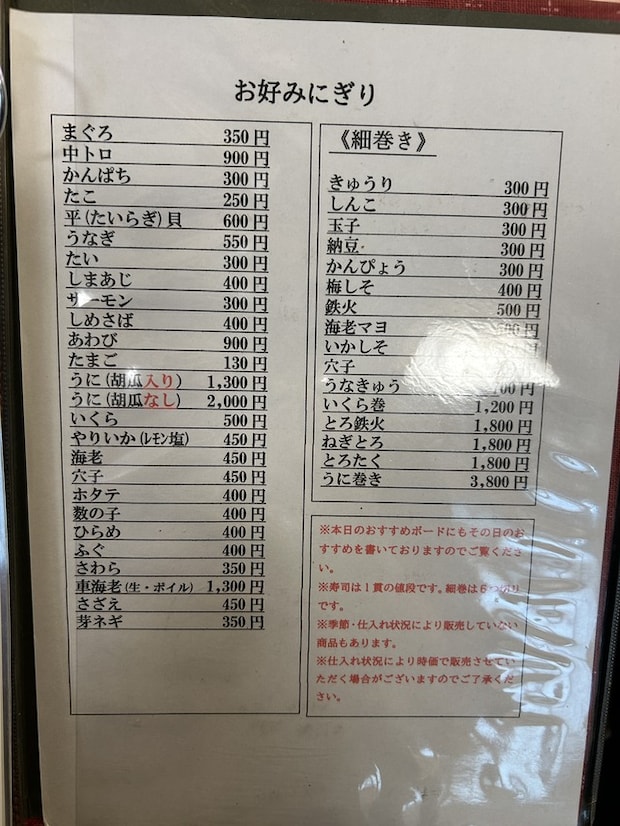 お好みにぎり
まぐろ 350円
中トロ 900円
かんぱち 300円
たこ 250円
平(たいらぎ)貝 600円
うなぎ 550円
たい 300円
しまあじ 400円
サーモン 300円
しめさば 400円
あわび 900円
たまご 130円
うに(胡瓜入り) 1,300円
うに(胡瓜なし) 2,000円
いくら 500円
やりいか(レモン塩) 450円
海老 450円
穴子 450円
ホタテ 400円
数の子 400円
ひらめ 400円
ふぐ 400円
さわら 350円
車海老(生・ボイル) 1,300円
さざえ 450円
芽ネギ 350円
《細巻き》
きゅうり 300円
しんこ 300円
玉子 300円
納豆 300円
かんぴょう 300円
梅しそ 400円
鉄火 500円
海老マヨ 円
いかしそ
穴子 円
うなきゅう 円
いくら巻 1,200円
とろ鉄火 1,800円
ねぎとろ 1,800円
とろたく 1,800円
うに巻き 3,800円
※本日のおすすめボードにもその日のお
すすめを書いておりますのでご覧くださ
い。
※寿司は1貫の値段です。細巻は6つ切り
です。
※季節・仕入れ状況により販売していない
商品もあります。
※仕入れ状況により時価で販売させてい
ただく場合がございますのでご了承くだ
さい。